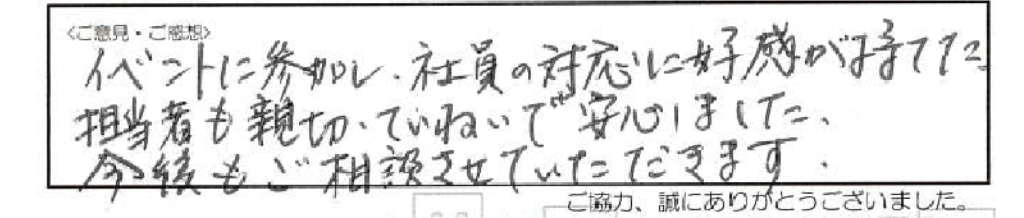 <ご意見・ご感想>
イベントに参加し、社員の対応に好感が持てた
担当者も親切、ていねいで安心しました、
今後もご相談させていただきます.
ご協力、誠にありがとうございました。